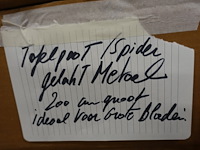 Tafelpoot / Spider
gelakt Metaal
200 cm groot
ideaal Voor Grote Bladen